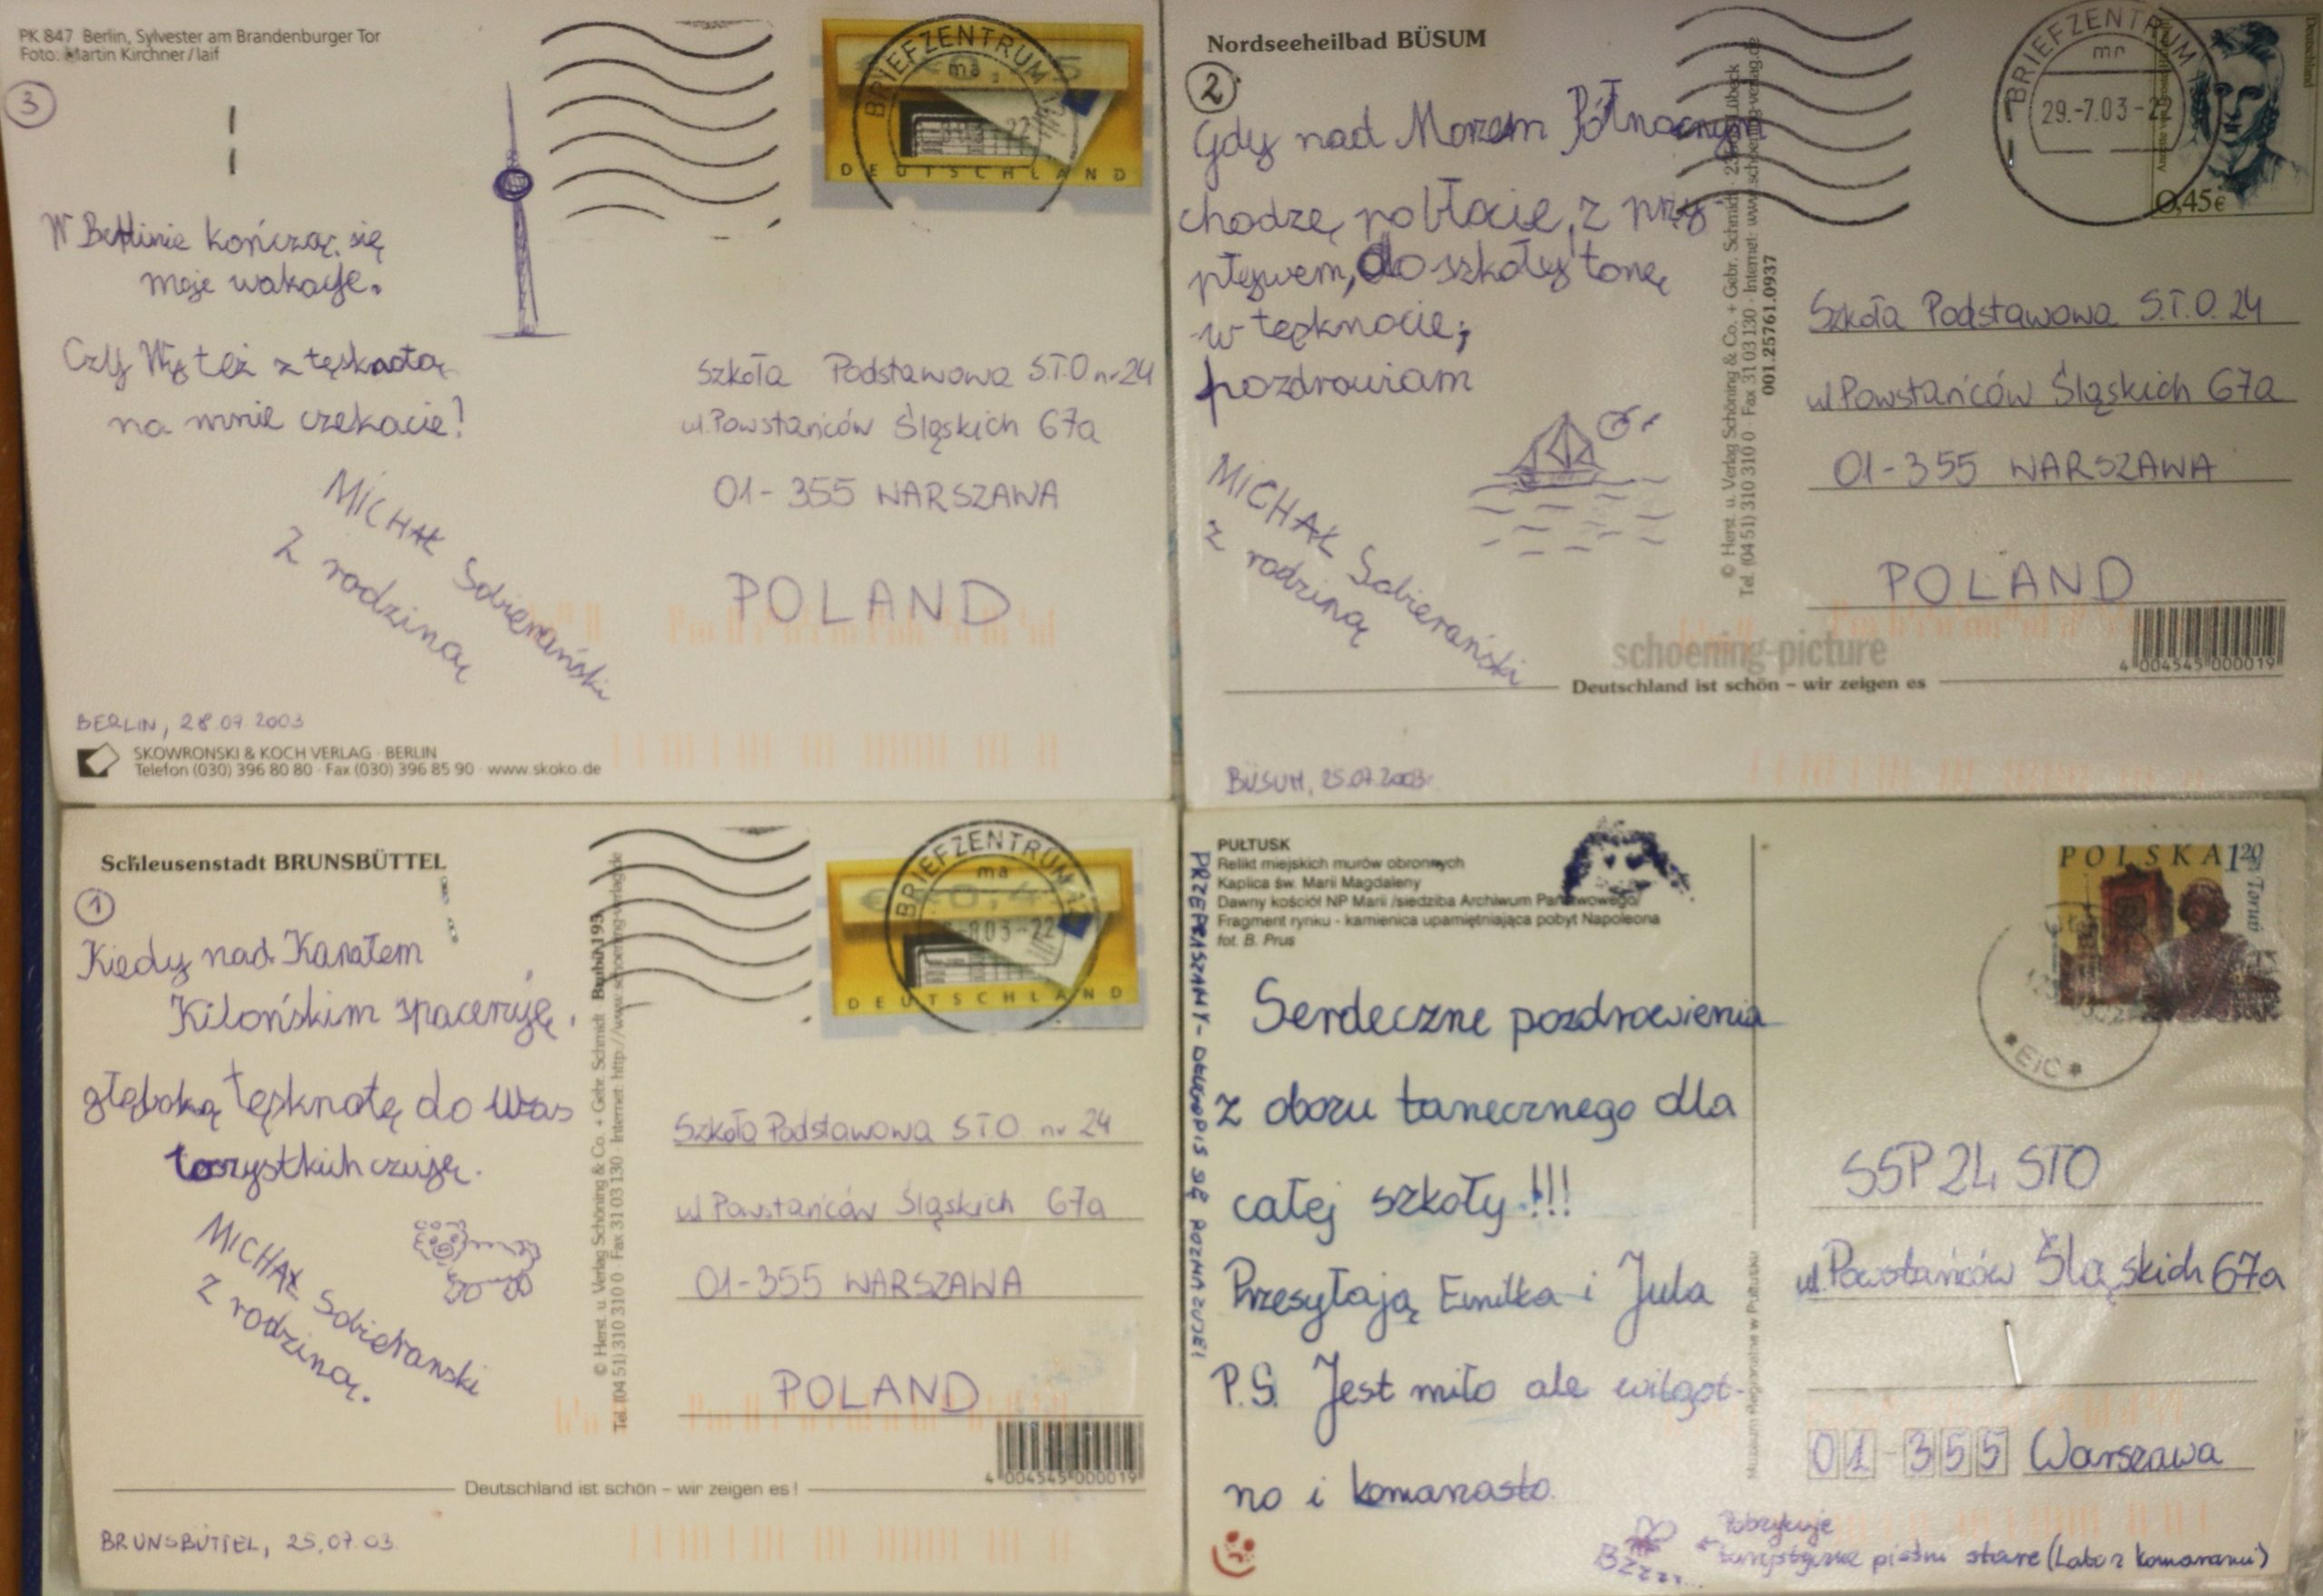 PK 847 Berlin, Sylvester am Brandenburger Tor
Foto: Martin Kirchner/laif
3
BRIEFZENTRUM
ma
DEUTSCHLAND
W Berlinie kończą się
moje wakacje.
Czy Wy też z tęsknotą
na mnie czekacie!
MICHAŁ Sobierański
z rodziną
Szkoła Podstawowa S.T.O nr 24
ul. Powstańców Śląskich 67a
01-355 WARSZAWA
POLAND
BERLIN, 28.07.2003
SKOWRONSKI & KOCH VERLAG · BERLIN
Telefon (030) 396 80 80 · Fax (030) 396 85 90 · www.skoko.de
Nordseeheilbad BÜSUM
2
BRIEFZENTRUM
mn
29.-7.03-22
Deutschland
0,45€
Gdy nad Morzem Północnym
chodzę po błocie, z przy-
pływem, do szkoły tonę
w tęsknocie;
pozdrawiam
MICHAŁ Sobierański
z rodziną
© Herst. u. Verlag Schöning & Co. + Gebr. Schmidt
Tel. (04 51) 310 310 0 · Fax 31 03 130 · Internet: www.schoening-verlag.de
001.25761.0937
Szkoła Podstawowa S.T.O. 24
ul Powstańców Śląskich 67a
01-355 WARSZAWA
POLAND
4 004545 000019
schoening-picture
Deutschland ist schön – wir zeigen es
BÜSUM, 25.07.2003
Schleusenstadt BRUNSBÜTTEL
1
BRIEFZENTRUM
ma
DEUTSCHLAND
Kiedy nad Kanałem
Kilońskim spaceruję,
głęboką tęsknotę do Was
wszystkich czuję.
MICHAŁ Sobierański
z rodziną.
© Herst. u. Verlag Schöning & Co. + Gebr. Schmidt
Tel. (04 51) 310 310 0 · Fax 31 03 130 · Internet: http://www.schoening-verlag.de
Szkoła Podstawowa STO nr 24
ul Powstańców Śląskich 67a
01-355 WARSZAWA
POLAND
4 004545 000019
Deutschland ist schön – wir zeigen es!
BRUNSBÜTTEL, 25.07.03
PUŁTUSK
Relikt miejskich murów obronnych
Kaplica św. Marii Magdaleny
Dawny kościół NP Marii /siedziba Archiwum Państwowego/
Fragment rynku - kamienica upamiętniająca pobyt Napoleona
fot. B. Prus
POLSKA 1,20
Toruń
PRZEPRASZAMY - DŁUGOPIS SIĘ
Serdeczne pozdrowienia
z obozu tanecznego dla
całej szkoły!!!
Przesyłają Emilka i Jula
P.S. Jest miło ale wilgot-
no i komarzasto.
Muzeum Regionalne w Pułtusku
SSP 24 STO
ul. Powstańców Śląskich 67a
01-355 Warszawa
Bzzzz...
stare (Labo z komarami)